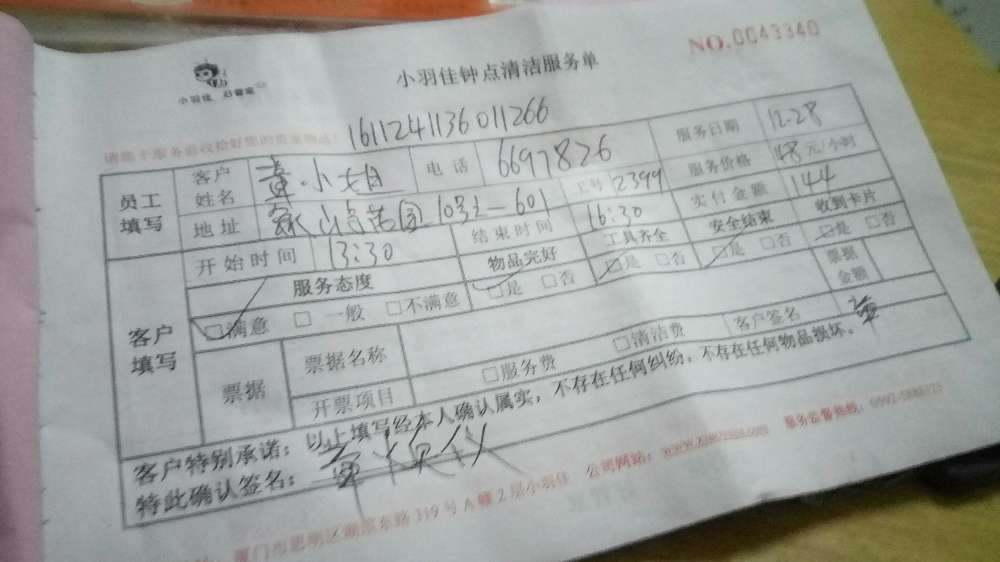 小羽佳
NO.0043340
小羽佳钟点清洁服务单
1611241136011266
员工填写 客户姓名 小姐 电话 6697826 服务日期 12.28
地址 103-601 工号 2399 服务价格 48元/小时
开始时间 13:30 结束时间 16:30 实付金额 144
客户填写 服务态度 物品完好 工具齐全 安全结束 收到卡片
□满意 □一般 □不满意 □是 □否 □是 □否 □是 □否 □是 □否
票据 票据名称 票据金额
开票项目 □服务费 □清洁费 客户签名
客户特别承诺：以上填写经本人确认属实，不存在任何纠纷，不存在任何物品损坏。
特此确认签名：
厦门市思明区湖滨东路319号A幢2层小羽佳 公司网站： 服务监督热线：